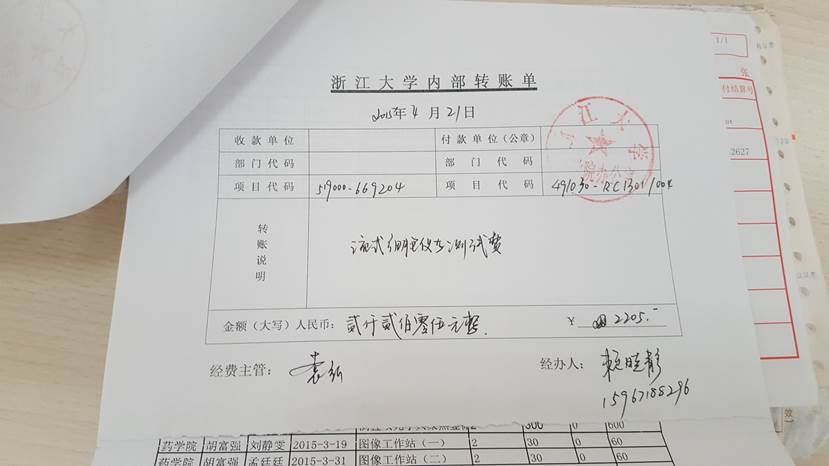 浙江大学内部转账单
2015年4月21日
收款单位 付款单位(公章)
部门代码 部门代码
项目代码 519000-669204 项目代码 491030-RC1301/004
转账说明 流式细胞仪 测试费
金额(大写)人民币: 贰仟贰佰零伍元整 ¥ 2205.-
经费主管: 经办人: 赖晓静
15967188296
300 0 600
药学院 胡富强 刘静雯 2015-3-19 图像工作站(一) 2 30 0 60
药学院 胡富强 孟廷廷 2015-3-31 图像工作站(二) 2 30 0 60
1/1
张
付结算号
2627